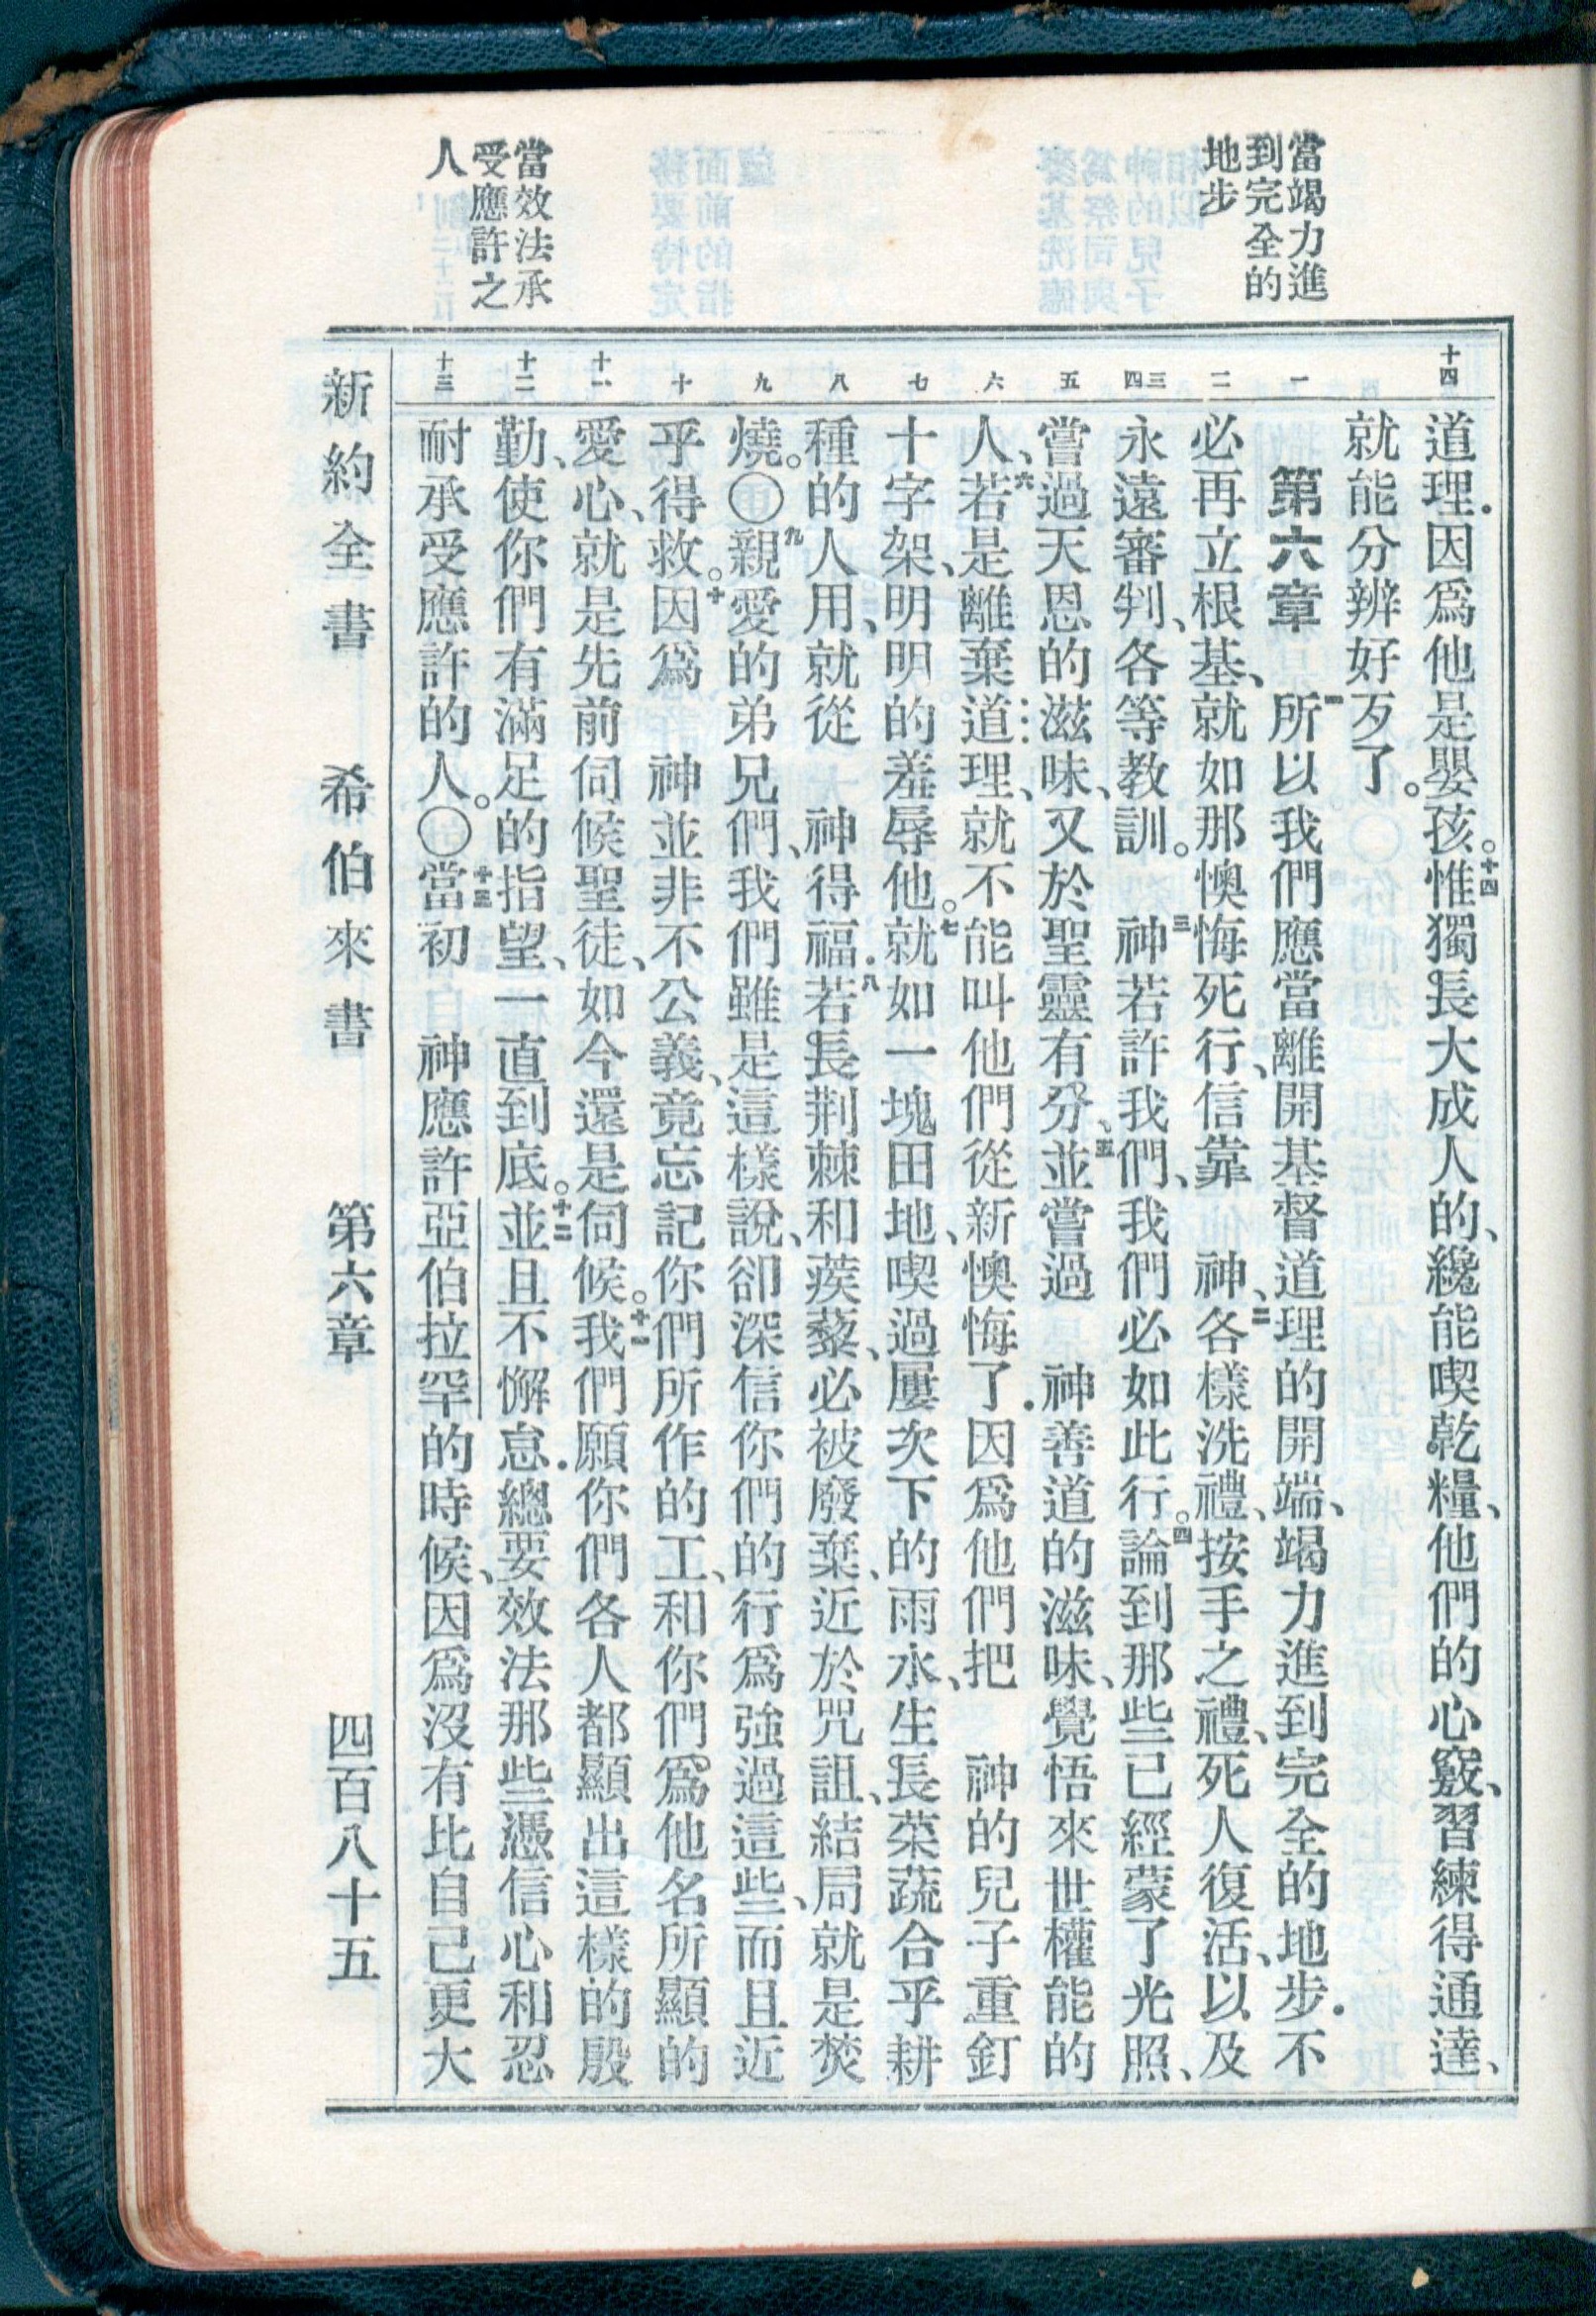 當竭力進
到完全的
地步
當效法承
受應許之
人
十四
一
二
三
四
五
六
七
八
九
十
十一
十二
十三
道理．因爲他是嬰孩。十四惟獨長大成人的、纔能喫乾糧、他們的心竅、習練得通達、
就能分辨好歹了。
第六章　一所以我們應當離開基督道理的開端、竭力進到完全的地步．不
必再立根基、就如那懊悔死行、信靠　神、二各樣洗禮、按手之禮、死人復活、以及
永遠審判、各等教訓。　三神若許我們、我們必如此行。四論到那些已經蒙了光照、
嘗過天恩的滋味、又於聖靈有分、五並嘗過　神善道的滋味、覺悟來世權能的
人、六若是離棄道理、就不能叫他們從新懊悔了．因爲他們把　神的兒子重釘
十字架、明明的羞辱他。七就如一塊田地、喫過屢次下的雨水、生長菜蔬合乎耕
種的人用、就從　神得福．八若長荆棘和蒺藜、必被廢棄、近於咒詛、結局就是焚
燒。〇九親愛的弟兄們、我們雖是這樣說、卻深信你們的行爲強過這些、而且近
乎得救。十因爲　神並非不公義、竟忘記你們所作的工、和你們爲他名所顯的
愛心、就是先前伺候聖徒、如今還是伺候。十一我們願你們各人都顯出這樣的殷
勤、使你們有滿足的指望、一直到底。十二並且不懈怠．總要效法那些憑信心和忍
耐承受應許的人。〇十三當初　神應許亞伯拉罕的時候、因爲沒有比自己更大
新約全書　希伯來書　第六章　四百八十五